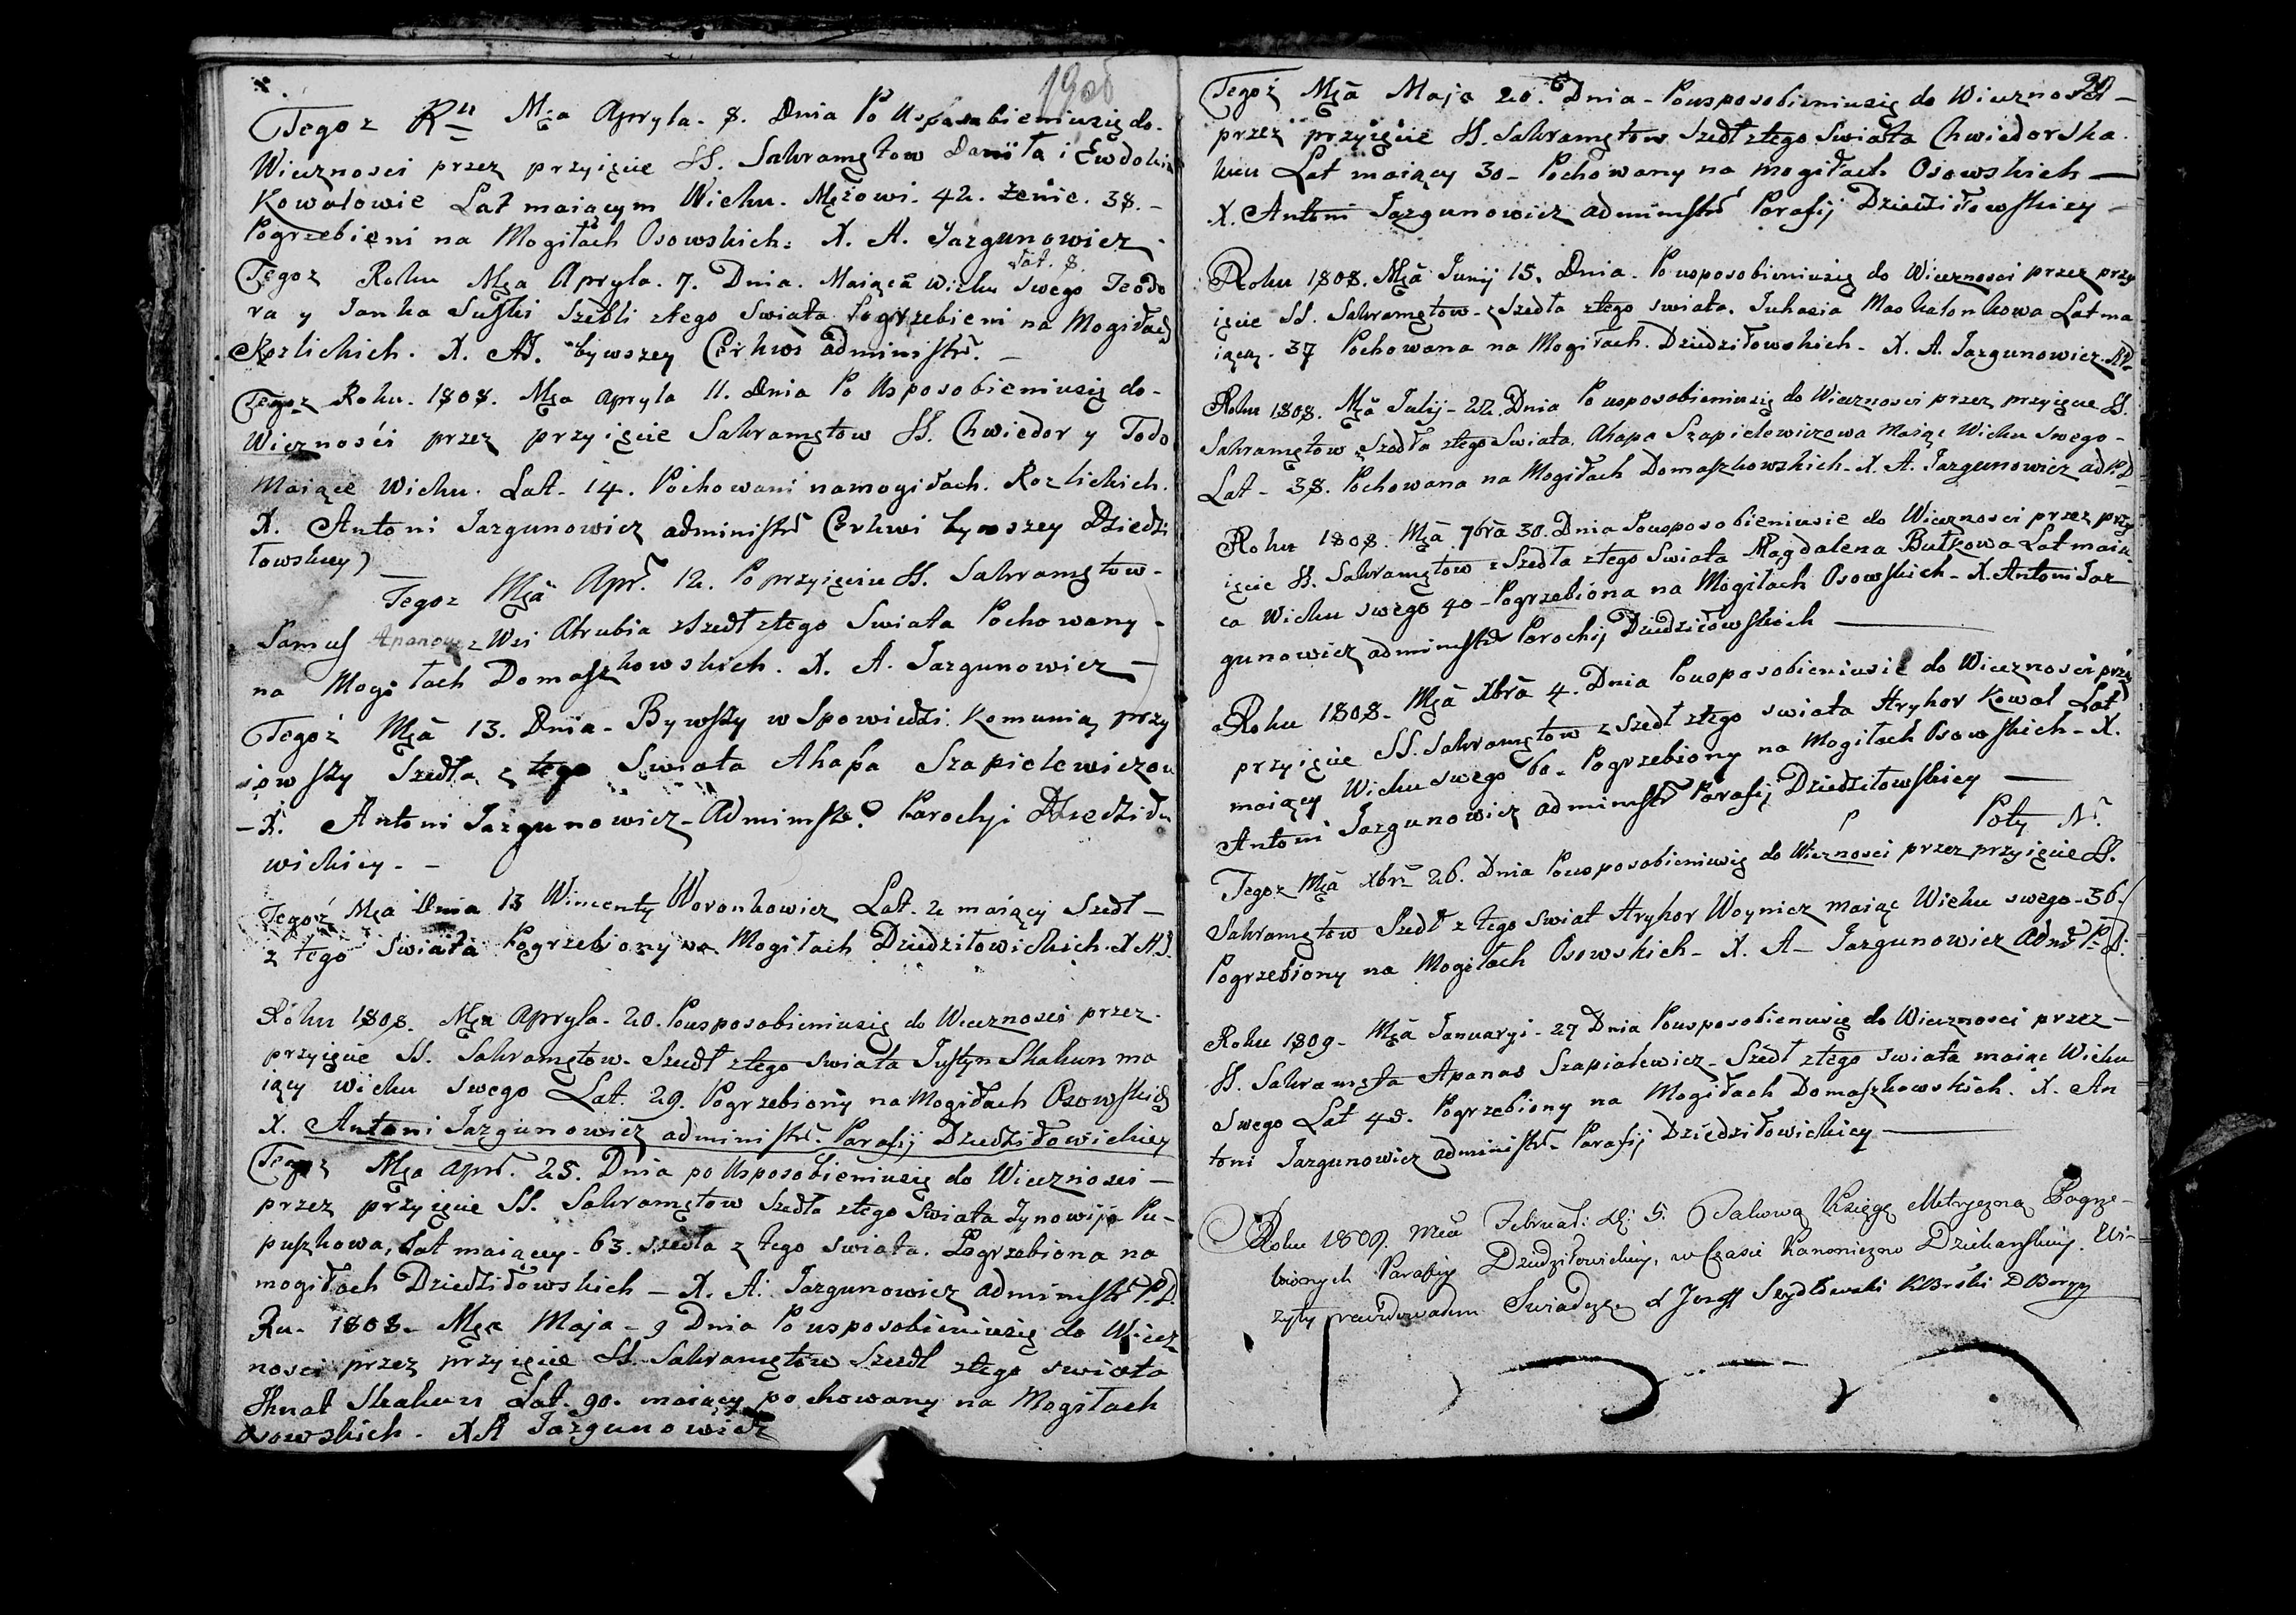 1908
Tegoz Ru Mca Apryla. 8. Dnia Po Usposobieniusię do.
Wiecznosci przez przyięcie SS. Sakramętow Daniła i Ewdokia
Kowalowie Lat maiącym Wieku. Mężowi. 42. żenie. 38. –
Pogrzebieni na Mogiłach Osowskich: X. A. Jazgunowicz
Lat. 8.
Tegoz Roku Mca Apryla. 7. Dnia. Maiąca wieku Swego Teodo
ra y Janka Suszki Szedli ztego Swiata Pogrzebieni na Mogiłach
Kozlickich. X. AJ. bywszey Cerkwi administr. –
Tegoz Roku. 1808. Mca apryla 11. Dnia Po Usposobieniusię do –
Wiecznośći przez przyięcie Sakramętow SS. Chwiedor y Todo
Maiące Wieku. Lat. 14. Pochowani namogiłach. Kozlickich.
X. Antoni Jazgunowicz administr Cerkwi bywszey Dziedzi
łowskiey)
Tegoz Mca Apr. 12. Po przyięciu SS. Sakramętow –
Samuś Apanow z Wsi Atrubia zszedł ztego Swiata Pochowany –
na Mogiłach Domaszkowskich. X. A. Jazgunowicz –
Tegoż Mca 13. Dnia – Bywszy w Spowiedzi. Komunią przy
iowszy Szedła z tego Swiata Ahapa Szapielewiczow
– X. Antoni Jazgunowicz – Administr. Parochji Dziedziło
wickiey. –
Tegoż Mca Dnia 13 Wincenty Woronkowicz Lat. 2 maiący Szedł –
z tego Swiata Pogrzebiony na Mogiłach Dziedziłowickich. X A J.
Roku 1808. Mca Apryla. 20. Pousposobieniusię do Wiecznosci przez.
przyięcie SS. Sakramętow. Szedł ztego swiata Justyn Skakun ma
iący wieku swego Lat. 29. Pogrzebiony na Mogiłach Osowskich
X. Antoni Jazgunowicz administr. Parafij Dziedziłowickiey
Tegoz Mca apr. 25. Dnia po Usposobieniusię do Wiecznosci –
przez przyięcie SS. Sakramętow Szedła ztego Swiata Zynowija Pu –
puszkowa, Lat maiącey – 63. szedła z tego swiata. Pogrzebiona na
mogiłach Dziedziłowskich – X. A. Jazgunowicz administr P. D.
Ru. 1808. Mca Maja – 9 Dnia Po usposobieniusię do Wiecz
nosci przez przyięcie SS. Sakramętow Szedł ztego swiata
Ihnat Skakun Lat. 90. maiący pochowany na Mogiłach
Osowskich. XA Jazgunowicz
Tegoż Mca Maja 20. Dnia – Pousposobieniusię do Wiecznosci –
przez przyięcie SS. Sakramętow Szedł ztego Swiata Chwiedor Ska
kun Lat maiący 30 – Pochowany na mogiłach Osowskich –
X. Antoni Jazgunowicz administr Parafij Dziedziłowskiey –
Roku 1808. Mca Junij 15. Dnia. Po usposobieniusię do Wiecznosci przez przy
ięcie SS. Sakramętow – zSzedła ztego swiata. Juhasia Maskalonkowa Lat ma
iącą. 37 Pochowana na Mogiłach. Dziedziłowskich – X. A. Jazgunowicz.
Roku 1808. Mca Julij – 22. Dnia Po usposobieniusię do Wiecznosci przez przyięcie SS.
Sakramętow zSzedła ztego Swiata. Ahapa Szapielewiczowa maiąc Wieku Swego –
Lat – 38. Pochowana na Mogiłach Domaszkowskich – X. A. Jazgunowicz ad P. D
Roku 1808. Mca 7bra 30. Dnia Pousposobieniusie do Wiecznosci przez przy
ięcie SS. Sakramętow zSzedła ztego Swiata Magdalena Butkowa Lat maią
ca Wieku swego 40 – Pogrzebiona na Mogiłach Osowskich – X. Antoni Jaz
gunowicz administr Parochij Dziedziłowskich –
Roku 1808. Mca Xbra 4. Dnia Pousposobieniusie do Wiecznosci prze
przyięcie SS. Sakramętow zszedł ztego swiata Hryhor Kowal Lat
maiący Wieku swego 60. Pogrzebiony na Mogiłach Osowskich – X.
Antoni Jazgunowicz administr Parafij Dziedziłowskiey –
Poty N.
Tegoz Mca Xbra 26. Dnia Pousposobieniusię do Wiecznosci przez przyięcie SS.
Sakramętow Szedł z tego swiat Hryhor Woynicz maiąc Wieku swego – 36.
Pogrzebiony na Mogiłach Osowskich – X. A – Jazgunowicz Adm P. D.
Roku 1809 – Mca Januarji – 27 Dnia Pousposobieniusię do Wiecznosci przez –
SS. Sakramęta Apanas Szapialewicz – Szedł ztego swiata maiąc Wieku
Swego Lat 48. Pogrzebiony na Mogiłach Domaszkowskich. X. An
toni Jazgunowicz administr – Parafij Dziedziłowickiey –
Roku 1809. Mca Februar: D: 5. Takową Xsięgę Metryczną Pogrze –
bionych Parafiy Dziedziłowickiey, w Czasie Kanoniczno Dziekanskiey. Wi –
zyty rewidowałem Swiadczę X Jozeff Szydłowski